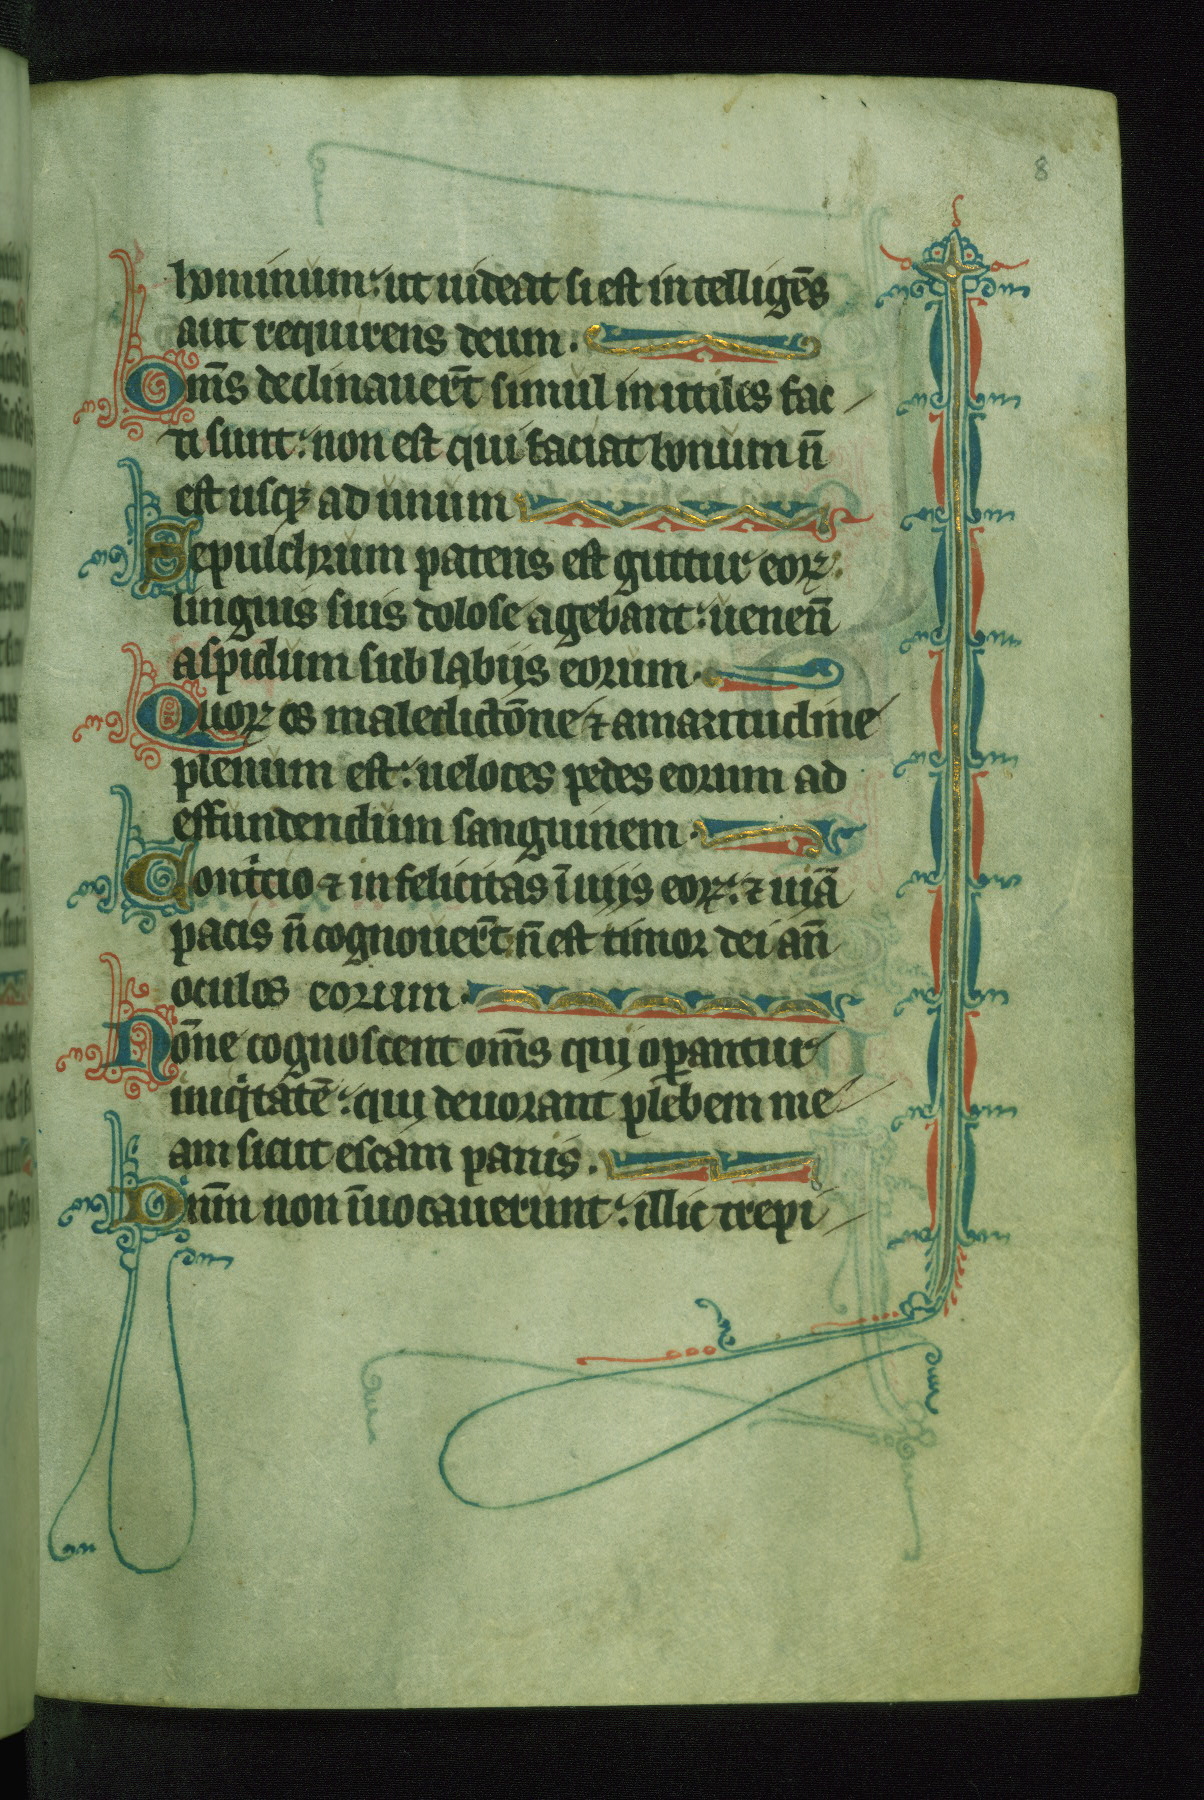 8
hominum: ut uideat si est intelligēs
aut requirens deum.
Om̄s declinauer̄t simul inutiles fac
ti sunt: non est qui faciat bonum n̄
est usqꝫ ad unum
Sepulchrum patens est guttur eoꝝ:
linguis suis dolose agebant: uenen̄
aspidum sub labiis eorum.
Quoꝝ os maledictōne ⁊ amaritudine
plenum est: ueloces pedes eorum ad
effundendum sanguinem.
Contͥcio ⁊ infelicitas ī uiis eoꝝ: ⁊ uiā
pacis n̄ cognouer̄t n̄ est timor dei an̄
oculos eorum.
Nōne cognoscent om̄s qui oꝑantur
iniqͥtatē: qui deuorant plebem me
am sicut escam panis.
Dn̄m non īuocauerunt: illic trepi